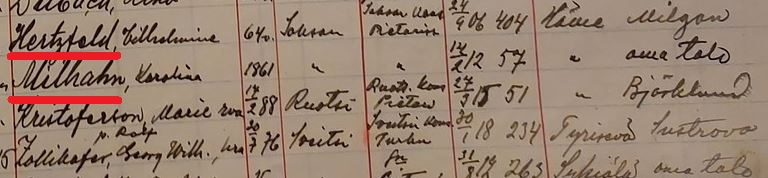 Hertzfeld, Vilhelmine 640. Saksan Saksan Kons Pietarin 24/9 06 404 Häme Milgon
Milhahn, Karolina 1861 " " 14/2 12 57 " oma talo
Kristoferson, Marie rva 17/2 88 Ruotsi Ruots. Kons Pietari 27/3 15 51 " Björklund
p. Rolf
Zollikofer, Georg Wilh., hra 20/7 76 Sveitsi Sveitsin Kons. Turku 30/1 18 234 Tyrisevä Sustrova
31/8 263 oma talo